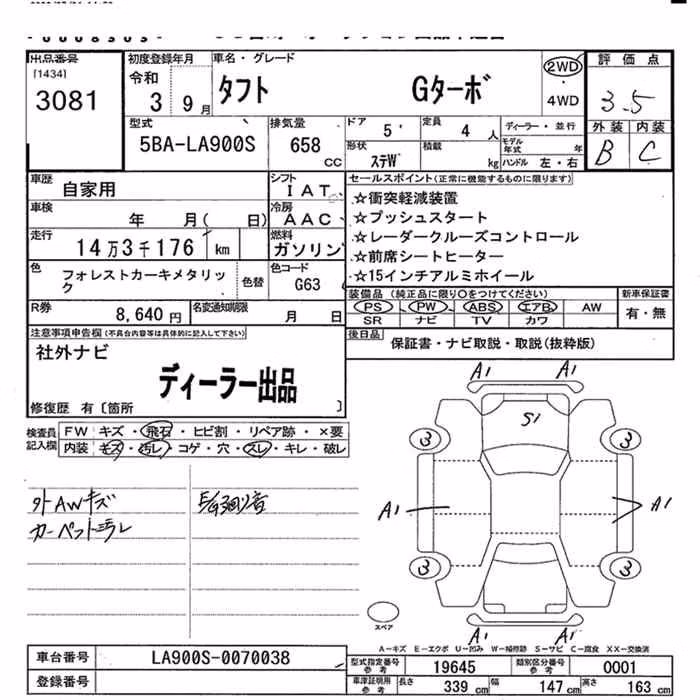 出品番号
[1434]
3081
初度登録年月
令和
3 9月
車名・グレード
タフト Gターボ
2WD
・
4WD
評価点
3.5
外装 内装
B C
型式
5BA-LA900S
排気量
658
cc
ドア 5
定員 4 人
ディーラー・並行
形状 ステW
積載 kg
モデル年式 年
ハンドル 左・右
車歴
自家用
シフト
IAT
車検
年 月( 日)
冷房
AAC
走行
14万3千176 km
燃料
ガソリン
色
フォレストカーキメタリック
色替
色コード
G63
R券
8,640円
名変通知期限
月 日
セールスポイント(正常に機能するものに限ります)
☆衝突軽減装置
☆プッシュスタート
☆レーダークルーズコントロール
☆前席シートヒーター
☆15インチアルミホイール
装備品(純正品に限り○をつけてください)
PS PW ABS エアB AW
SR ナビ TV カワ
新車保証書
有・無
後日品
保証書・ナビ取説・取説(抜粋版)
注意事項申告欄(不具合内容等は具体的に記入して下さい)
社外ナビ
ディーラー出品
修復歴 有〔箇所 〕
検査員
記入欄
FW キズ・飛石・ヒビ割・リペア跡・×要
内装 キズ・汚レ・コゲ・穴・スレ・キレ・破レ
外AWキズ
カーペット汚レ
A1 A1
S1
3 3
A1 A1
3 3
A1 A1
スペア
A-キズ E-エクボ U-凹み W-補修跡 S-サビ C-腐食 XX-交換済
車台番号
LA900S-0070038
登録番号
型式指定番号
参考
19645
類別区分番号
参考
0001
車庫証明用
参考
長さ 339 cm 幅 147 cm 高さ 163 cm